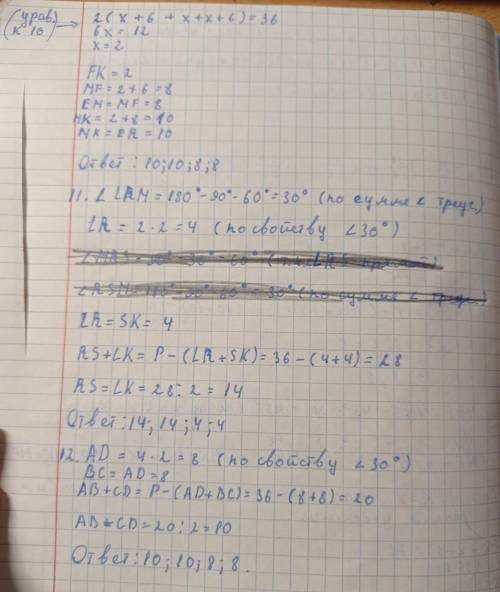 (урав. к 10) → 2(x+6+x+x+6)=36
6x=12
x=2
FK=2
MF=2+6=8
EM=MF=8
MK=2+8=10
MK=ER=10
Ответ: 10; 10; 8; 8
11. ∠LRM=180°-90°-60°=30° (по сумме ∠ треуг.)
LR=2·2=4 (по свойству ∠30°)
LR=SK=4
RS+LK=P-(LR+SK)=36-(4+4)=28
RS=LK=28:2=14
Ответ: 14; 14; 4; 4
12. AD=4·2=8 (по свойству ∠30°)
BC=AD=8
AB+CD=P-(AD+BC)=36-(8+8)=20
AB=CD=20:2=10
Ответ: 10; 10; 8; 8.